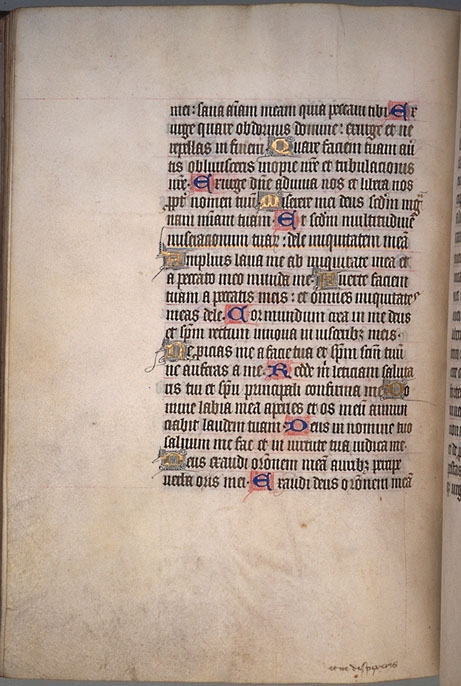 mei: sana aĩam meam quia peccaui tibi Ex
urge quare obdormis domine: exurge et ne
repellas in finem Quare faciem tuam auer
tis obliuisceris inopie nr̃e et tribulacionis
nr̃e. Exurge dñe adiuua nos et libera nos
ppt̃ nomen tuũ. Miserere mei deus scd̃m mag
nam mĩam tuam. Et scd̃m multitudinẽ
miseracionum tuarꝝ: dele iniquitatem meã
Amplius laua me ab iniquitate mea et
a peccato meo munda me. Auerte faciem
tuam a peccatis meis: et omnes iniquitates
meas dele. Cor mundum crea in me deus
et sp̃m rectum innoua in uisceribꝫ meis.
Ne proicias me a facie tua et sp̃m sc̃m tuũ
ne auferas a me. Redde m̃ leticiam saluta
ris tui et sp̃u principali confirma me Do
mine labia mea aperies et os meũ annun
ciabit laudem tuam. Deus in nomine tuo
saluum me fac et in uirtute tua iudica me.
Deus exaudi or̃onem meã auribꝫ percipe
uerba oris mei. Exaudi deus or̃onem meã
et ne despexeris